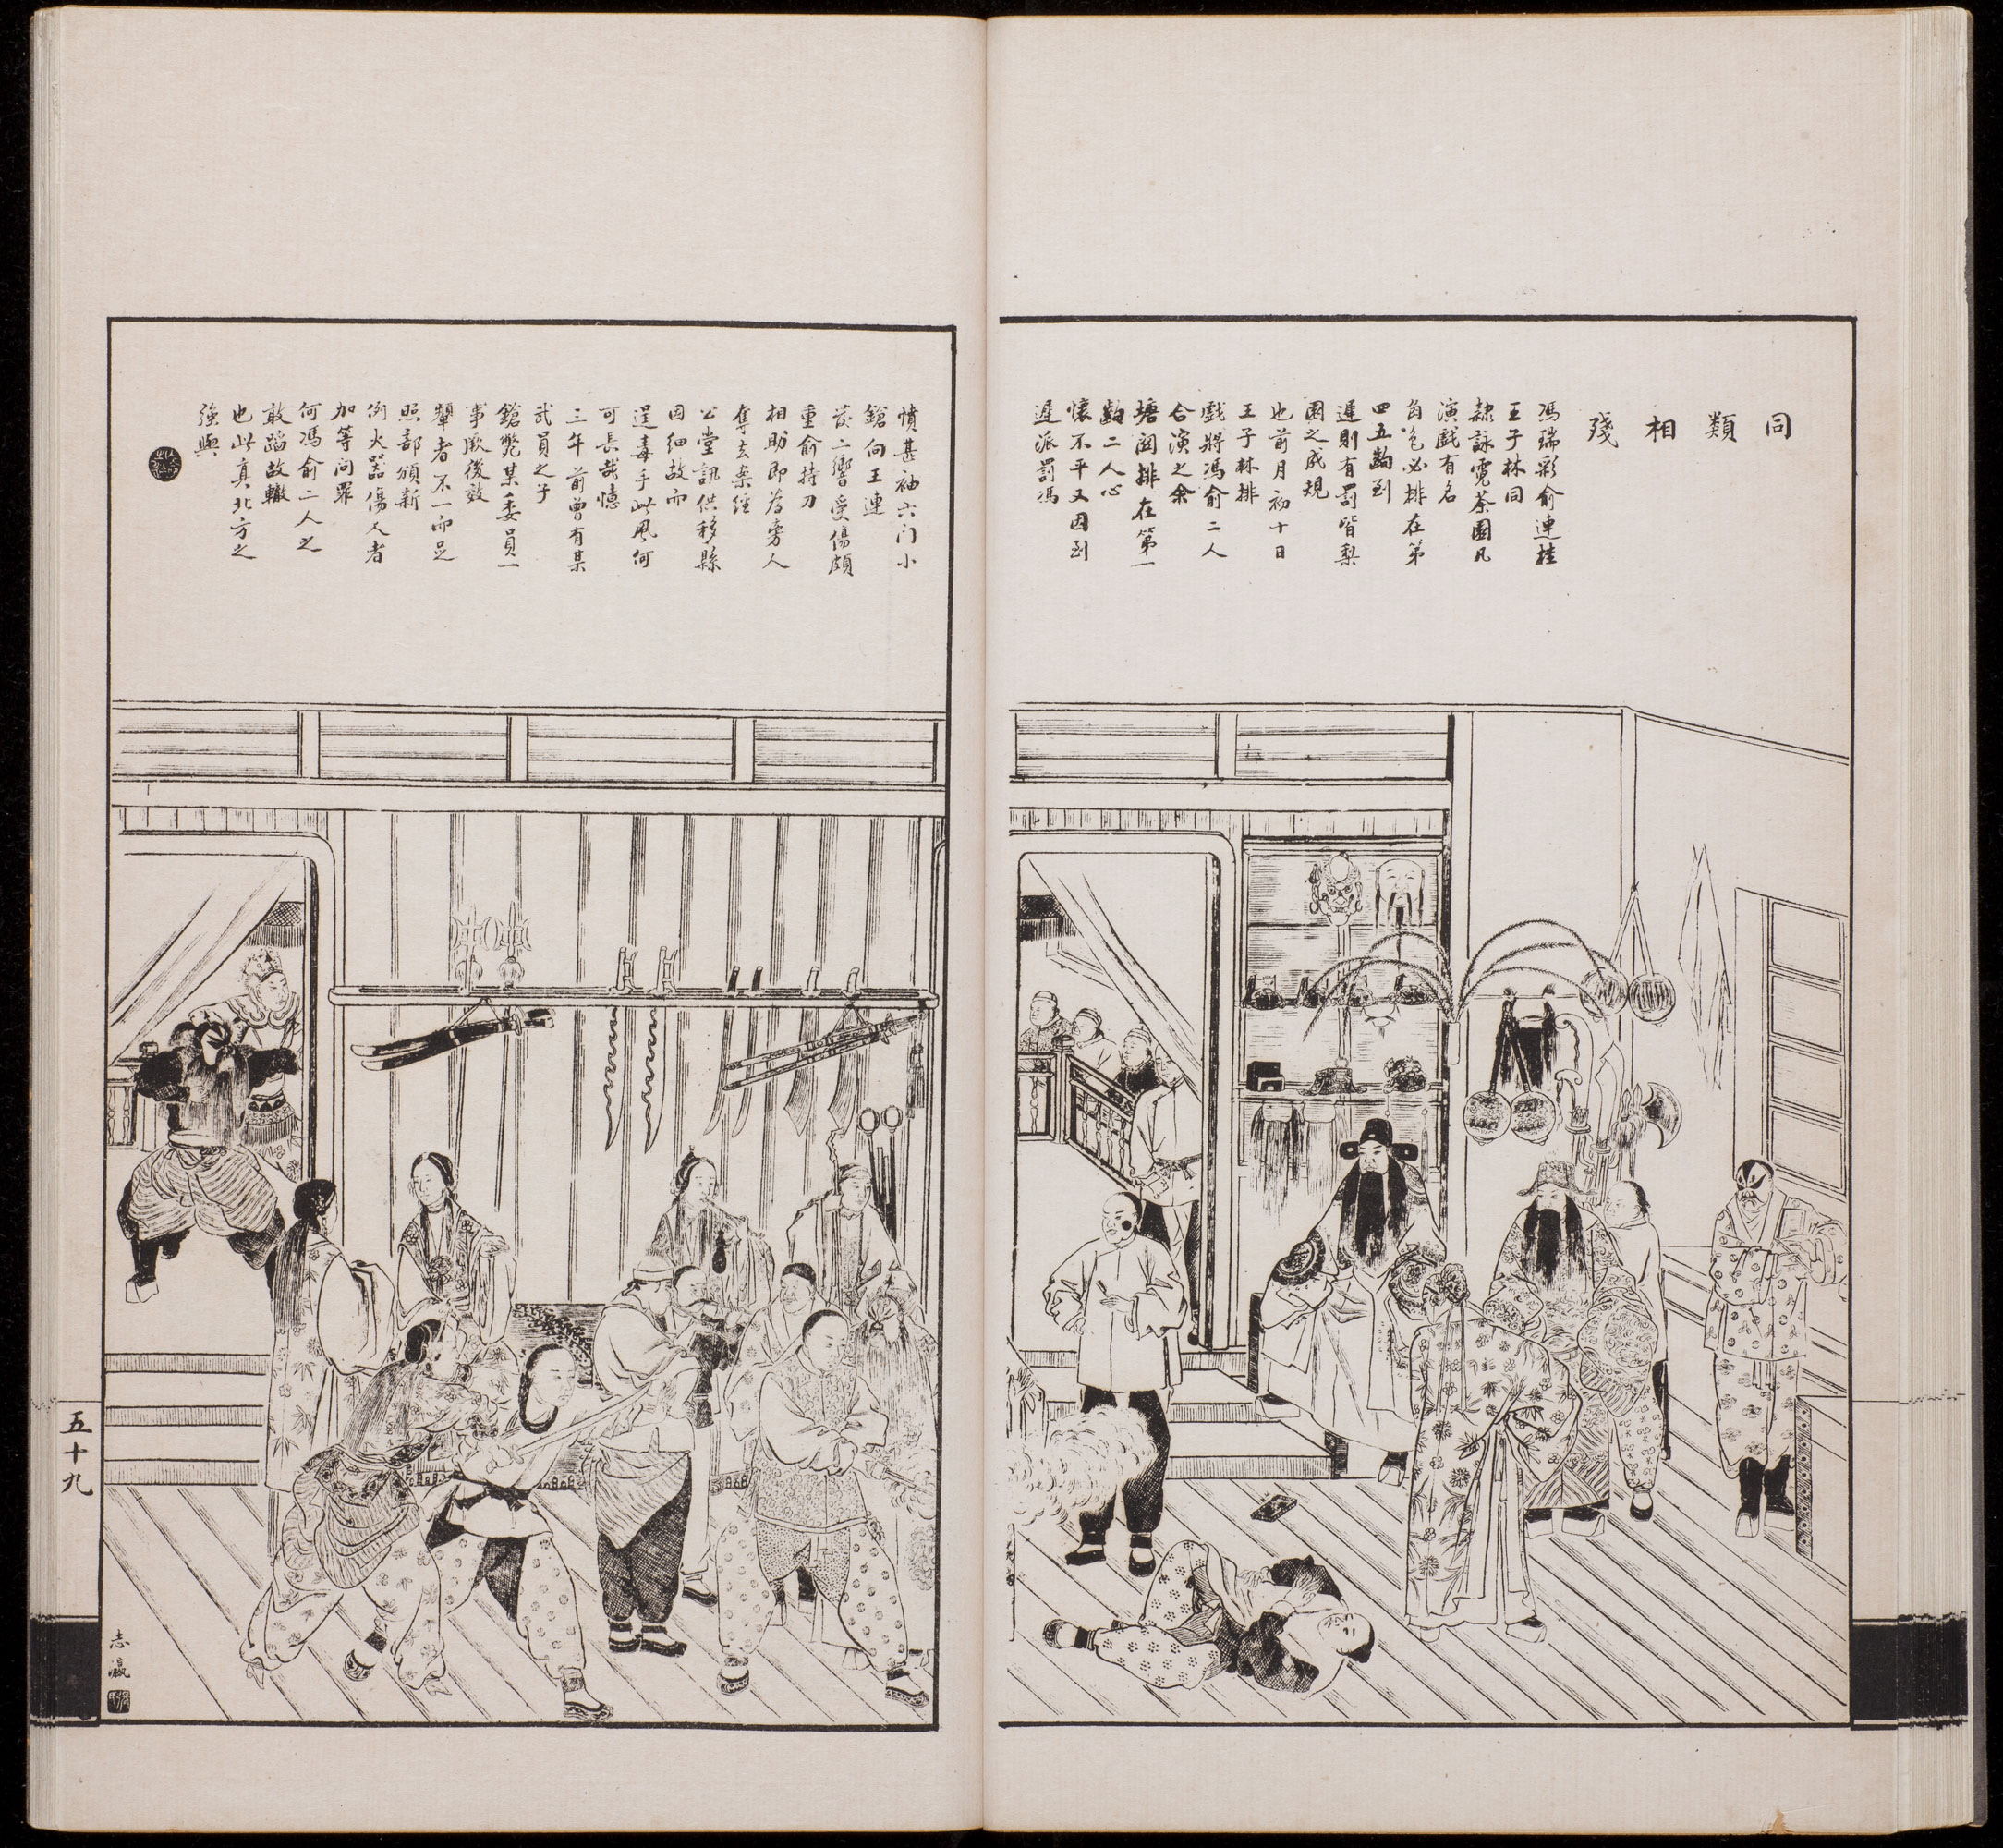 同類相殘
馮瑞彩俞連桂
王子林同
隸詠霓茶園凡
演戲有名
角色必排在第
四五齣到
遲則有罰皆梨
園之成規
也前月初十日
王子林排
戲將馮俞二人
合演之余
塘關排在第一
齣二人心
懷不平又因到
遲派罰馮
憤甚袖六门小
鎗向王連
放二響受傷頗
重俞持刀
相助即為旁人
奪去案經
公堂訊供移縣
因细故而
逞毒手此風何
可長哉憶
三年前曾有某
武員之子
鎗斃某委員一
事厥後效
顰者不一而足
照部頒新
例火器傷人者
加等问罪
何馮俞二人之
敢蹈故轍
也此真北方之
強與
五十九
志瀛